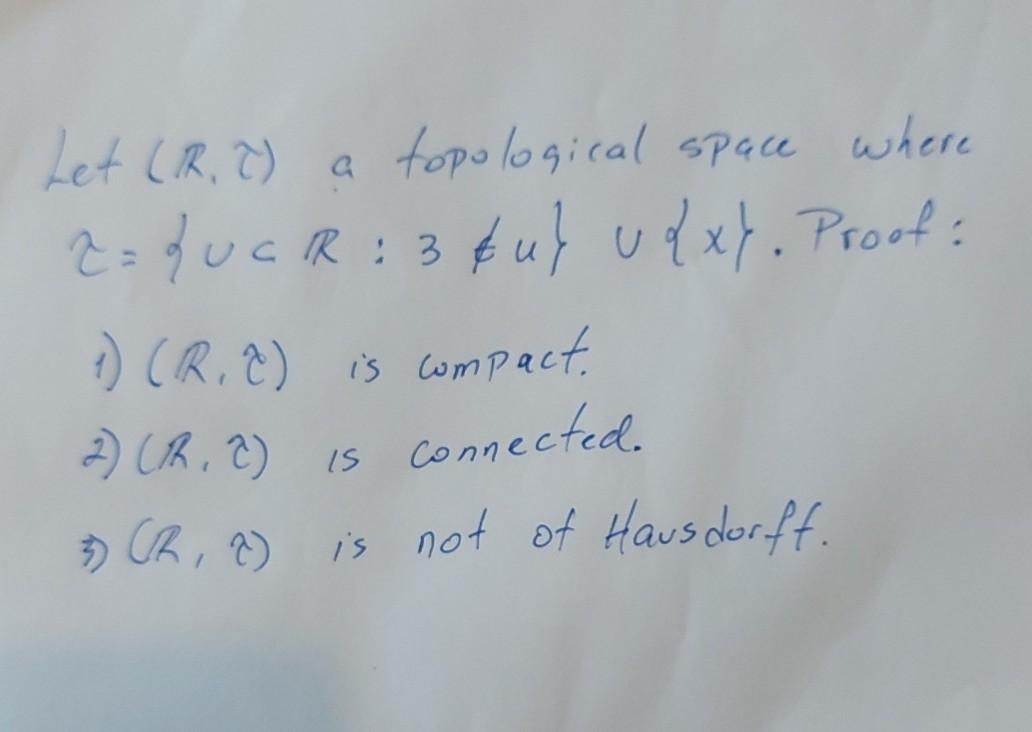 Let (ℝ, τ) a topological space where
τ = {U ⊂ ℝ : 3 ∉ u} ∪ {x}. Proof:
1) (ℝ, τ) is compact.
2) (ℝ, τ) is connected.
3) (ℝ, τ) is not of Hausdorff.